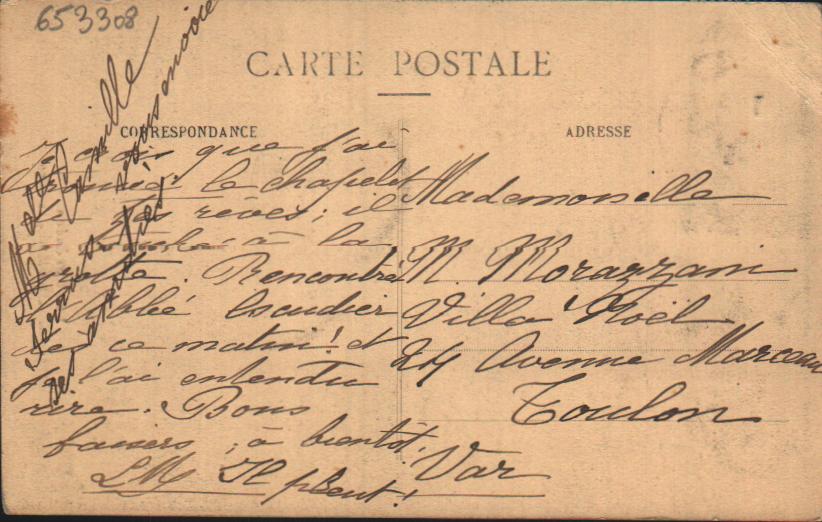 653308
CARTE POSTALE
CORRESPONDANCE
ADRESSE
Je crois que j'ai
trouvé le chapelet
de tes rêves; il
à la
grotte. Rencontré
l'Abbé Escudier
dès ce matin! et
je l'ai entendu
rire. Bons
baisers, à bientôt,
LM Il pleut!
Mademoiselle
M. Morazzani
Villa Noël
24 Avenue Marceau
Toulon
Var
Camille
vous envoie
ses amitiés